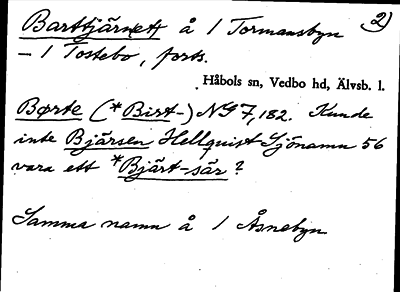 2)
Barttjärnet å 1 Tormansbyn
– 1 Tostebo, forts.
Håbols sn, Vedbo hd, Älvsb. l.
Børte (*Birt-) NG 7,182. Kunde
inte Bjärsen Hellquist Sjönamn 56
vara ett *Bjärt-sär?
Samma namn å 1 Åsnebyn